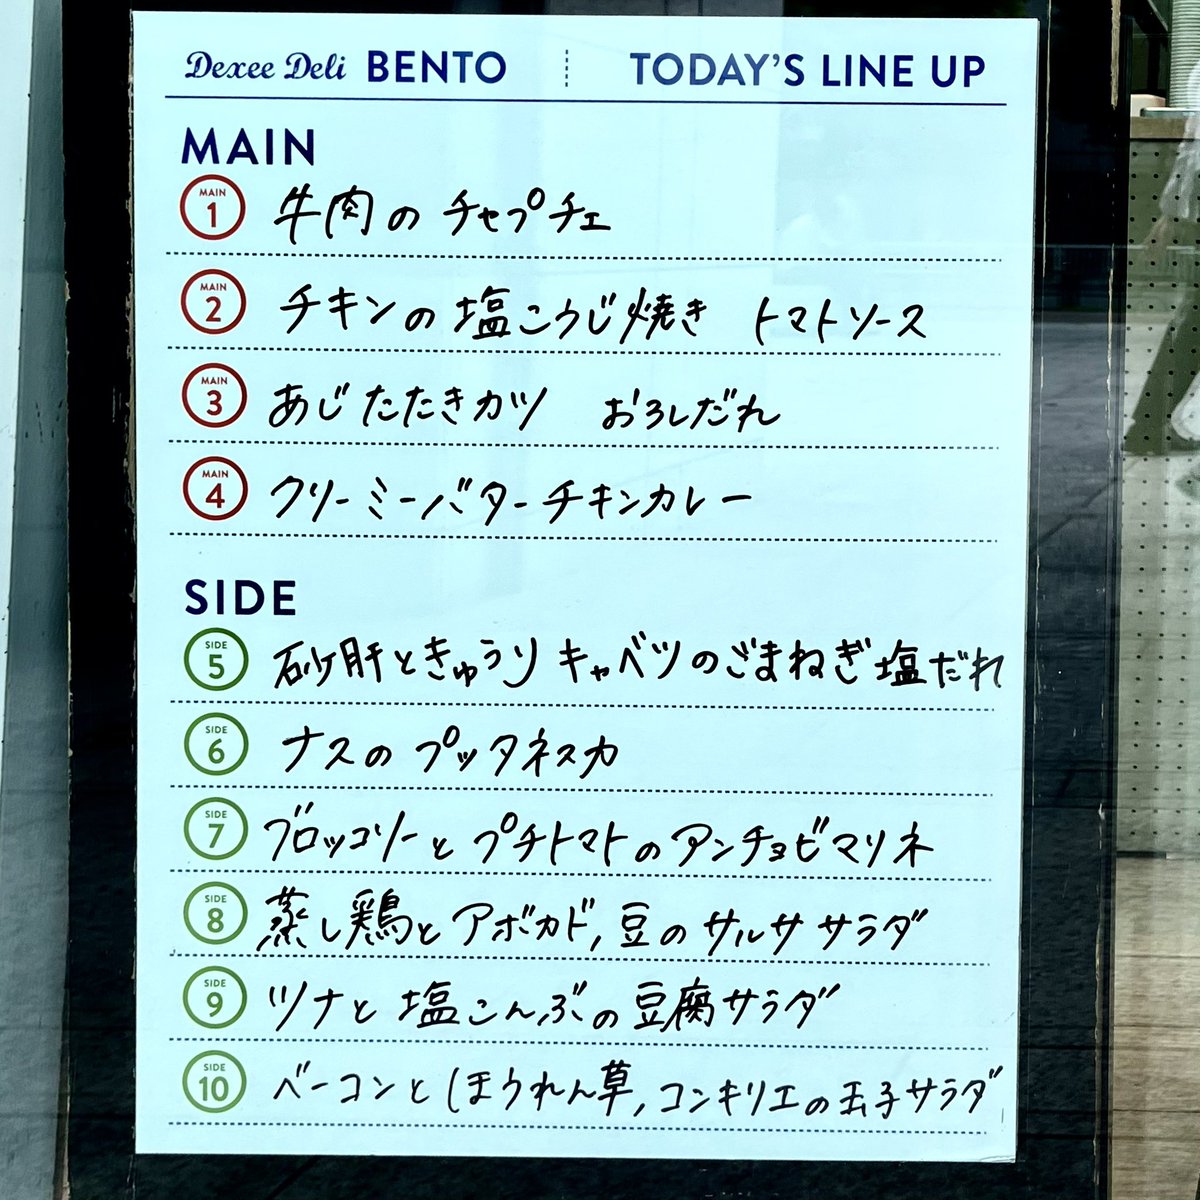 Dexee Deli BENTO TODAY'S LINE UP
MAIN
MAIN 1 牛肉のチャプチェ
MAIN 2 チキンの塩こうじ焼き トマトソース
MAIN 3 あじたたきカツ おろしだれ
MAIN 4 クリーミーバターチキンカレー
SIDE
SIDE 5 砂肝ときゅうりキャベツのごまねぎ塩だれ
SIDE 6 ナスのプッタネスカ
SIDE 7 ブロッコリーとプチトマトのアンチョビマリネ
SIDE 8 蒸し鶏とアボカド,豆のサルササラダ
SIDE 9 ツナと塩こんぶの豆腐サラダ
SIDE 10 ベーコンとほうれん草,コンキリエの玉子サラダ